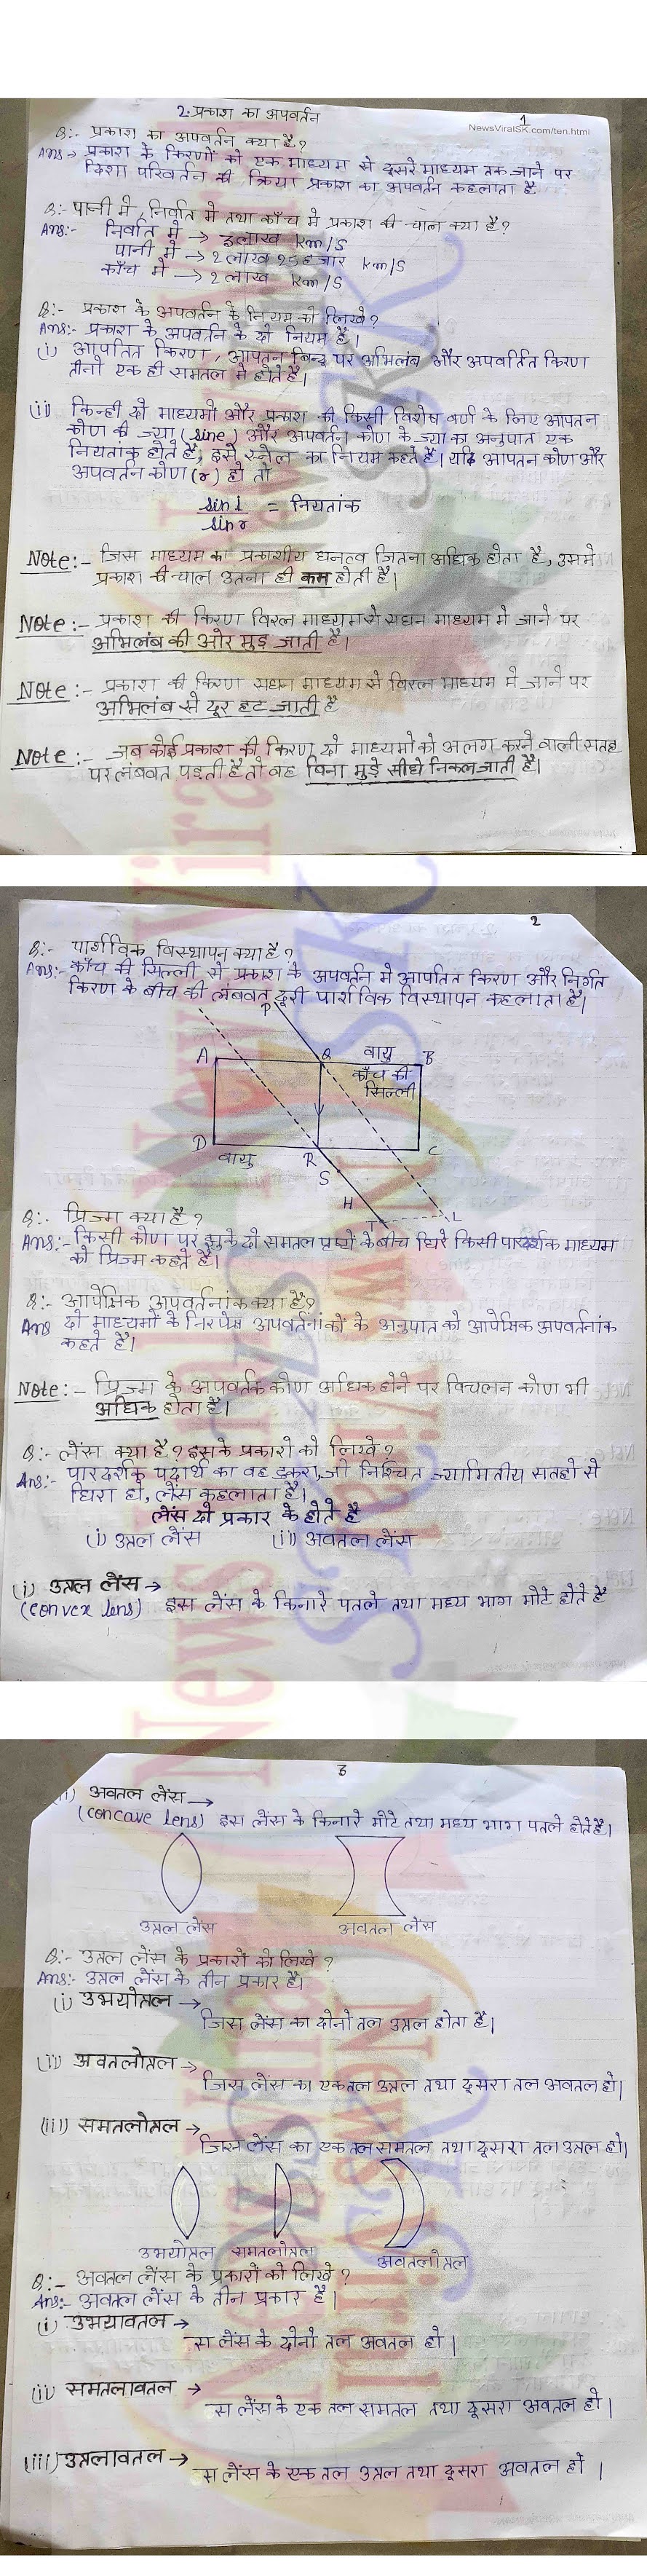 2. प्रकाश का अपवर्तन
1
NewsViralSK.com/ten.html
Q:- प्रकाश का अपवर्तन क्या है?
Ans→ प्रकाश के किरणों को एक माध्यम से दूसरे माध्यम तक जाने पर
दिशा परिवर्तन की क्रिया प्रकाश का अपवर्तन कहलाता है
Q:- पानी में, निर्वात में तथा काँच में प्रकाश की चाल क्या है?
Ans:- निर्वात में → 3लाख km/s
पानी में → 2 लाख 25 हजार km/s
काँच में → 2 लाख km/s
Q:- प्रकाश के अपवर्तन के नियम को लिखे?
Ans:- प्रकाश के अपवर्तन के दो नियम है।
(i) आपतित किरण, आपतन बिन्दु पर अभिलंब और अपवर्तित किरण
तीनो एक ही समतल में होते है।
(ii) किन्ही दो माध्यमो और प्रकाश की किसी विशेष वर्ण के लिए आपतन
कोण की ज्या (sine) और अपवर्तन कोण के ज्या का अनुपात एक
नियतांक होते है, इसे स्नेल का नियम कहते है। यदि आपतन कोण और
अपवर्तन कोण (r) हो तो
sin i
= नियतांक
sin r
Note:- जिस माध्यम का प्रकाशीय घनत्व जितना अधिक होता है, उसमे
प्रकाश की चाल उतना ही कम होती है।
Note:- प्रकाश की किरण विरल माध्यम से सघन माध्यम में जाने पर
अभिलंब की ओर मुड़ जाती है।
Note:- प्रकाश की किरण सघन माध्यम से विरल माध्यम में जाने पर
अभिलंब से दूर हट जाती है
Note:- जब कोई प्रकाश की किरण दो माध्यमो को अलग करने वाली सतह
पर लंबवत पड़ती है तो वह बिना मुड़े सीधे निकल जाती है।
2
Q:- पार्श्विक विस्थापन क्या है?
Ans:- काँच की सिल्ली से प्रकाश के अपवर्तन में आपतित किरण और निर्गत
किरण के बीच की लंबवत दूरी पार्श्विक विस्थापन कहलाता है।
P
A
Q
वायु
B
काँच की
सिल्ली
D
वायु
R
C
S
H
T
L
Q:- प्रिज्म क्या है?
Ans:- किसी कोण पर झुके दो समतल पृष्ठों के बीच घिरे किसी पारदर्शक माध्यम
को प्रिज्म कहते है।
Q:- आपेक्षिक अपवर्तनांक क्या है?
Ans दो माध्यमों के निरपेक्ष अपवर्तनांकों के अनुपात को आपेक्षिक अपवर्तनांक
कहते है।
Note:- प्रिज्म के अपवर्तक कोण अधिक होने पर विचलन कोण भी
अधिक होता है।
Q:- लेंस क्या है? इसके प्रकारो को लिखे?
Ans:- पारदर्शक पदार्थ का वह टुकरा, जो निश्चित ज्यामितीय सतहो से
घिरा हो, लेंस कहलाता है।
लेंस दो प्रकार के होते है
(i) उत्तल लेंस (ii) अवतल लेंस
(i) उत्तल लेंस →
(convex lens) इस लेंस के किनारे पतले तथा मध्य भाग मोटे होते है
3
(ii) अवतल लेंस →
(concave lens) इस लेंस के किनारे मोटे तथा मध्य भाग पतले होते है।
उत्तल लेंस
अवतल लेंस
Q:- उत्तल लेंस के प्रकारो को लिखे?
Ans:- उत्तल लेंस के तीन प्रकार है।
(i) उभयोत्तल →
जिस लेंस का दोनो तल उत्तल होता है।
(ii) अवतलोत्तल →
जिस लेंस का एक तल उत्तल तथा दूसरा तल अवतल हो।
(iii) समतलोत्तल →
जिस लेंस का एक तल समतल तथा दूसरा तल उत्तल हो।
उभयोत्तल समतलोत्तल अवतलोत्तल
Q:- अवतल लेंस के प्रकारो को लिखे?
Ans:- अवतल लेंस के तीन प्रकार है।
(i) उभयावतल →
स लेंस के दोनो तल अवतल हो।
(ii) समतलावतल →
स लेंस के एक तल समतल तथा दूसरा अवतल हो।
(iii) उत्तलावतल →
स लेंस के एक तल उत्तल तथा दूसरा अवतल हो।